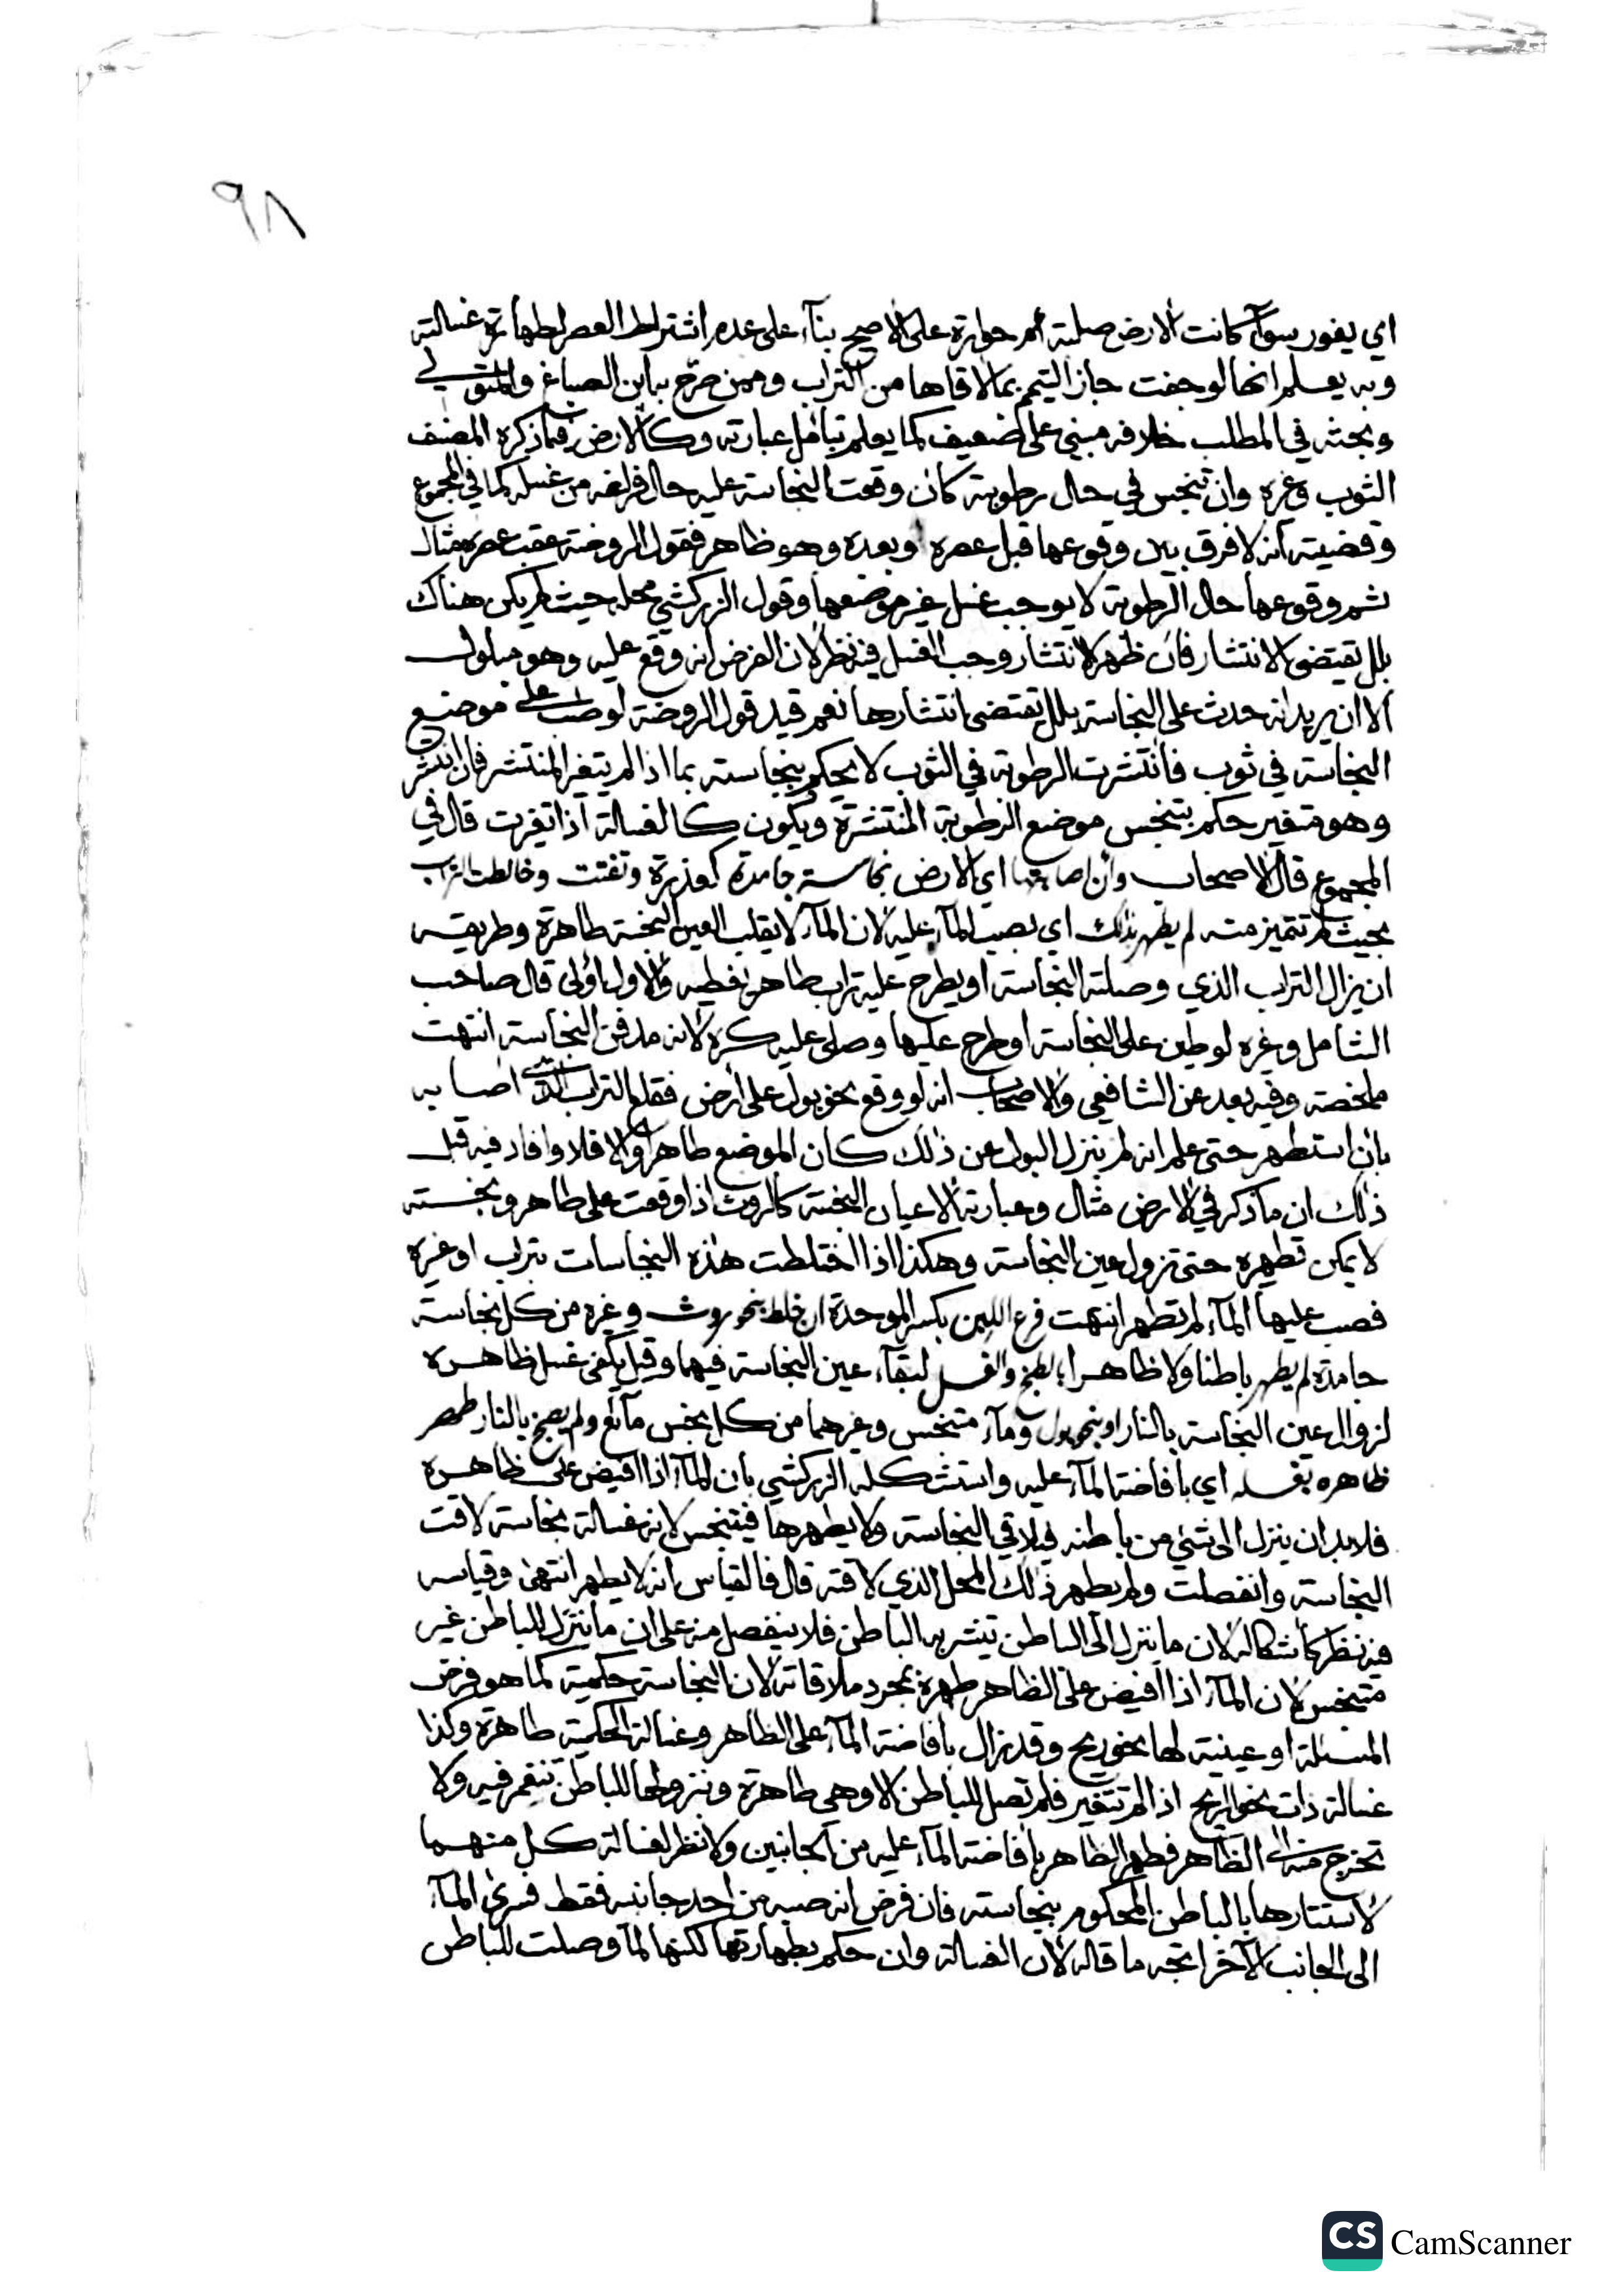 ٩٨
اي يغور سوآء كانت الارض صلبة ام خوارة على الاصح بنآء على عدم اشتراط العصر لطهارة غسالته
وبه يعلم انها لو جفت جاز التيمم بما لاقاها من التراب وممن صرح به ابن الصباغ والمتولي
وبحثه في المطلب خلافه مبني على ضعيف كما يعلم بتأمل عبارته وكالارض فيما ذكره المصنف
الثوب وغره وان تنجس في حال رطوبة كان وقعت النجاسة عليه حال فراغه من غسله كما في المجموع
وقضيته انه لا فرق بين وقوعها قبل عصره وبعده وهو ظاهر فقول الروضة عقب عصره مثال
ثم وقوعها حال الرطوبة لا يوجب غسل غير موضعها وقول الزركشي محله حيث لم يكن هناك
بلل يقتضي الانتشار فان ظهر الانتشار وجب الغسل فيه نظر لان الفرض انه وقع عليه وهو مبلول
الا ان يريد انه حدث على النجاسة بلل يقتضي انتشارها نعم قيد قول الروضة لو صب على موضع
النجاسة في ثوب فانتشرت الرطوبة في الثوب لا يحكم بنجاسته بما اذا لم يتغير المنتشر فان انتشر
وهو متغير حكم بتنجس موضع الرطوبة المنتشرة ويكون كالغسالة اذا تغيرت قال في
المجموع قال الاصحاب وان اصابتها اي الارض نجاسة جامدة كعذرة وتفتت وخالطت التراب
بحيث لم تتميز منه لم يطهر بذلك اي بصب المآء عليه لان المآء لا يقلب العين النجسة طاهرة وطريقه
ان يزال التراب الذي وصلته النجاسة او يطرح عليه تراب طاهر يغطيه والاول اولى قال صاحب
الشامل وغره لو طين على النجاسة او طرح عليها وصلى عليه كره لانه مدفن النجاسة انتهت
ملخصة وفيه بعد عن الشافعي والاصحاب انه لو وقع نحو بول على ارض فقلع التراب الذي اصابه
بان استظهر حتى علم انه لم ينزل البول عن ذلك كان الموضع طاهرا والا فلا وافاد فيه قبل
ذلك ان ما ذكر في الارض مثال وعبارته الاعيان النجسة كالروث اذا وقعت على طاهر ونجسته
لا يمكن تطهيره حتى تزول عين النجاسة وهكذا اذا اختلطت هذه النجاسات بتراب او غره
فصب عليها المآء لم تطهر انتهت فرع اللبن بكسر الموحدة ان خلط بنحو روث وغره من كل نجاسة
جامدة لم يطهر باطنا ولا ظاهرا بطبخ والغسل لبقآء عين النجاسة فيهما وقيل يكفي غسل ظاهره
لزوال عين النجاسة بالنار او بنحو بول ومآء متنجس وغرهما من كل نجس مائع ولم يطبخ بالنار طهر
ظاهره بغسله اي بافاضة المآء عليه واستشكله الزركشي بان المآء اذا افيض على ظاهره
فلا بد ان ينزل الى شيء من باطنه فيلاقي النجاسة ولا يطهرها فيتنجس لانه غسالة نجاسة لاقت
النجاسة وانفصلت ولم يطهر ذلك المحل الذي لاقته قال فالقياس انه لا يطهر انتهى وقياسه
فيه نظر كاشكاله لان ما ينزل الى الباطن يتشربه الباطن فلا ينفصل منه على ان ما ينزل للباطن غير
متنجس لان المآء اذا افيض على الظاهر طهره بمجرد ملاقاته لان النجاسة حكمية كما هو فرض
المسئلة او عينية لها نحو ريح وقد تزال بافاضة المآء على الظاهر وغسالة الحكمية طاهرة وكذا
غسالة ذات نحو الريح اذا لم تتغير فلم تصل للباطن الا وهي طاهرة ونزولها للباطن تنغمر فيه ولا
تخرج منه الى الظاهر فطهر الظاهر بافاضة المآء عليه من الجانبين ولا نظر لغسالة كل منهما
لاستتارها بالباطن المحكوم بنجاسته فان فرض انه صبه من احد جانبيه فقط فسرى المآء
الى الجانب الآخر اتجه ما قاله لان الغسالة وان حكم بطهارتها لكنها لما وصلت للباطن
CS CamScanner